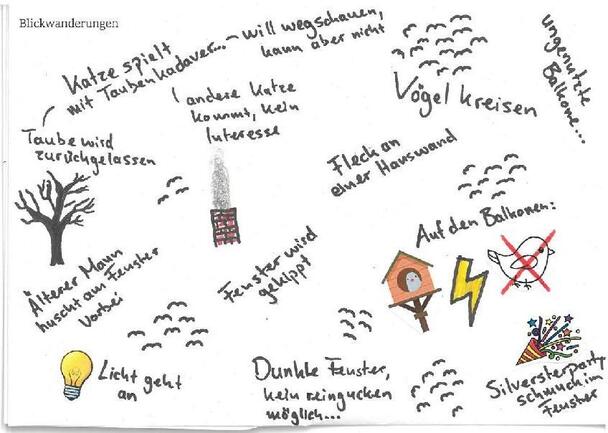 Blickwanderungen
Katze spielt
mit Taubenkadaver...
will wegschauen,
kann aber nicht
andere Katze
kommt, kein
Interesse
Taube wird
zurückgelassen
Vögel kreisen
ungenutzte
Balkone...
Fleck an
einer Hauswand
Auf den Balkonen:
Älterer Mann
huscht am Fenster
vorbei
Fenster wird
gekippt
Licht geht
an
Dunkle Fenster,
kein reingucken
möglich...
Silversterparty
schmuck im
Fenster